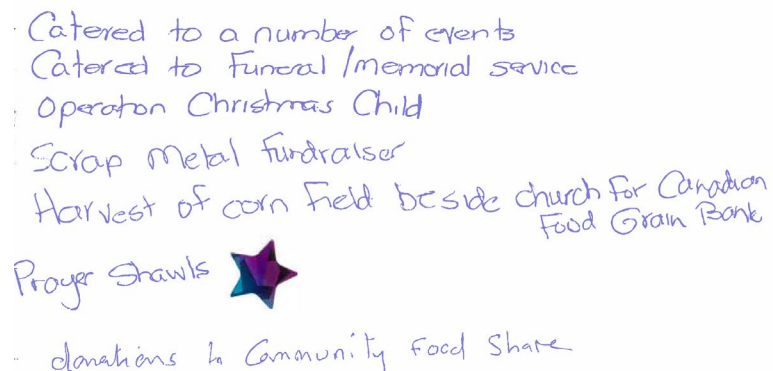 Catered to a number of events
Catered to Funeral/memorial service
Operation Christmas Child
Scrap Metal fundraiser
Harvest of corn field beside church for Canadian
Food Grain Bank
Prayer Shawls
donations to Community Food Share